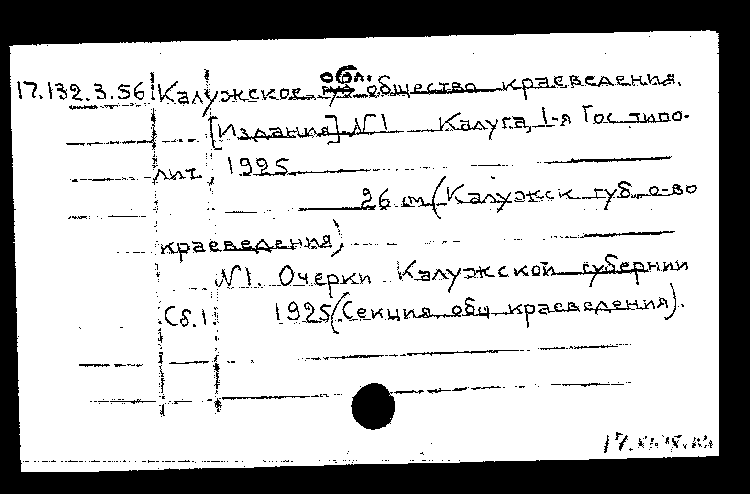 обл.
17.132.3.56 Калужское губ общество краеведения.
[Издания] №1 Калуга, 1-я Гос типо-
лит., 1925
26 см (Калужск губ. о-во
краеведения)
№1. Очерки Калужской губернии
Сб.1. 1925 (Секция общ краеведения).
17.